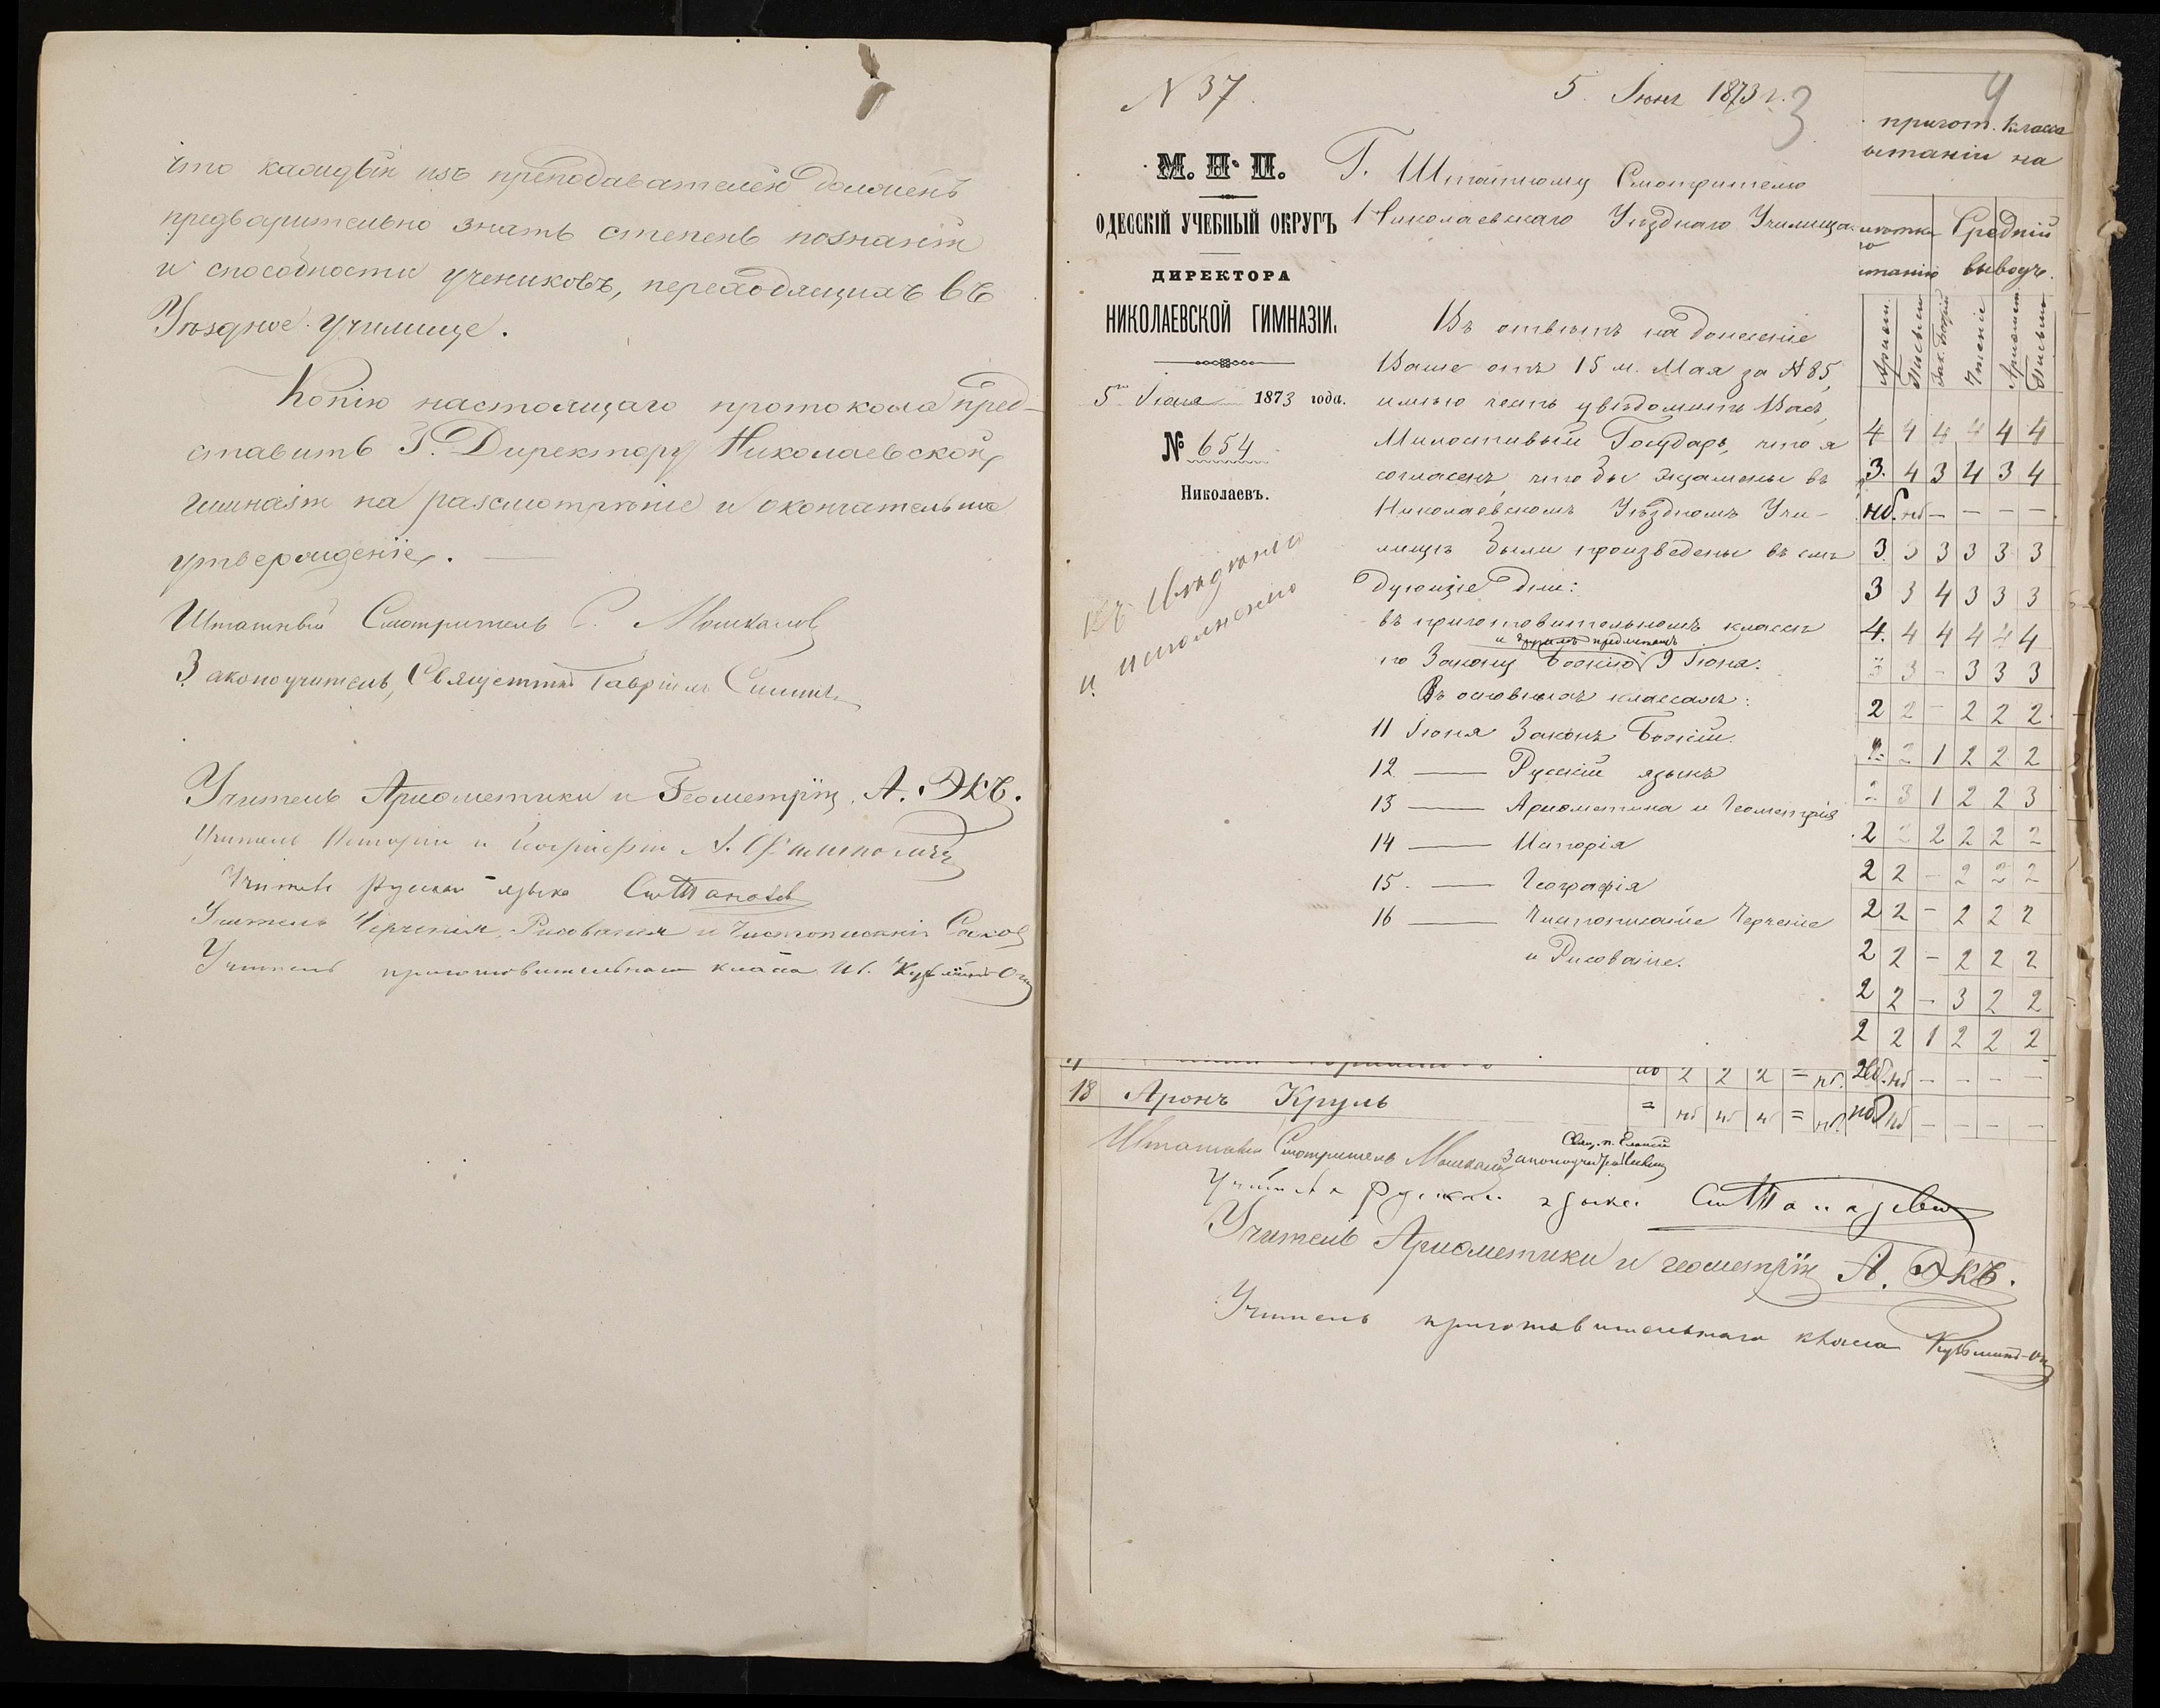 что каждый изъ преподавателей долженъ
предварительно знать степень познаній
и способности учениковъ, переходящихъ въ
Уѣздное Училище.
Копію настоящаго протокола пред-
ставить Г. Директору Николаевской
гимназіи на разсмотрѣніе и окончательное
утвержденіе.
Штатный Смотритель С. Мошкалов
Законоучитель, Священникъ Гавріилъ
Учитель Ариѳметики и Геометріи, А. Экъ.
Учитель Исторіи и Географіи
Учитель русскаго языка
Учитель Черченія, Рисованія и Чистописанія
Учитель приготовительнаго класса Ив.
N 37.
5 Іюня 1873 г.
3
М. Н. П.
ОДЕССКІЙ УЧЕБНЫЙ ОКРУГЪ
ДИРЕКТОРА
НИКОЛАЕВСКОЙ ГИМНАЗІИ.
5го Іюня 1873 года.
№ 654
Николаевъ.
Къ свѣдѣнію
и исполненію
Г. Штатному Смотрителю
Николаевскаго Уѣзднаго Училища.
Въ отвѣтъ на донесеніе
Ваше отъ 15 м. Мая за № 85,
имѣю честь увѣдомить Васъ,
Милостивый Государь, что я
согласенъ, чтобы экзамены въ
Николаевскомъ Уѣздномъ Учи-
лищѣ были произведены въ слѣ
дующіе дни:
въ приготовительномъ классѣ
и другимъ предметамъ
по Закону Божію 9 Іюня.
Въ основныхъ классахъ:
11 Іюня Законъ Божій.
12 — Русскій языкъ
13 — Ариѳметика и Геометрія
14 — Исторія
15. — Географія
16 — Чистописаніе Черченіе
и Рисованіе.
4
пригот. класса
ытаніи на
Средній
ытанію выводъ.
Ариѳм. Письмо Зак. Божій Чтеніе Ариѳмет Письмо
4 4 4 4 4 4
3. 4 3 4 3 4
нб. нб — — — —
3 3 3 3 3 3
3 3 4 3 3 3
4. 4 4 4 4 4
3 3 — 3 3 3
2 2 — 2 2 2
2 2 1 2 2 2
2 3 1 2 2 3
2 2 2 2 2 2
2 2 — 2 2 2
2 2 — 2 2 2
2 2 — 2 2 2
2 2 — 3 2 2
2 2 1 2 2 2
нб 2 2 2 = нб. нб. нб — — — —
18 Аронъ Круль = нб нб нб = нб нб нб — — — —
Штатный Смотритель Мошкалов
Учитель русскаго языка
Учитель Ариѳметики и геометріи А. Экъ.
Учитель приготовительнаго класса